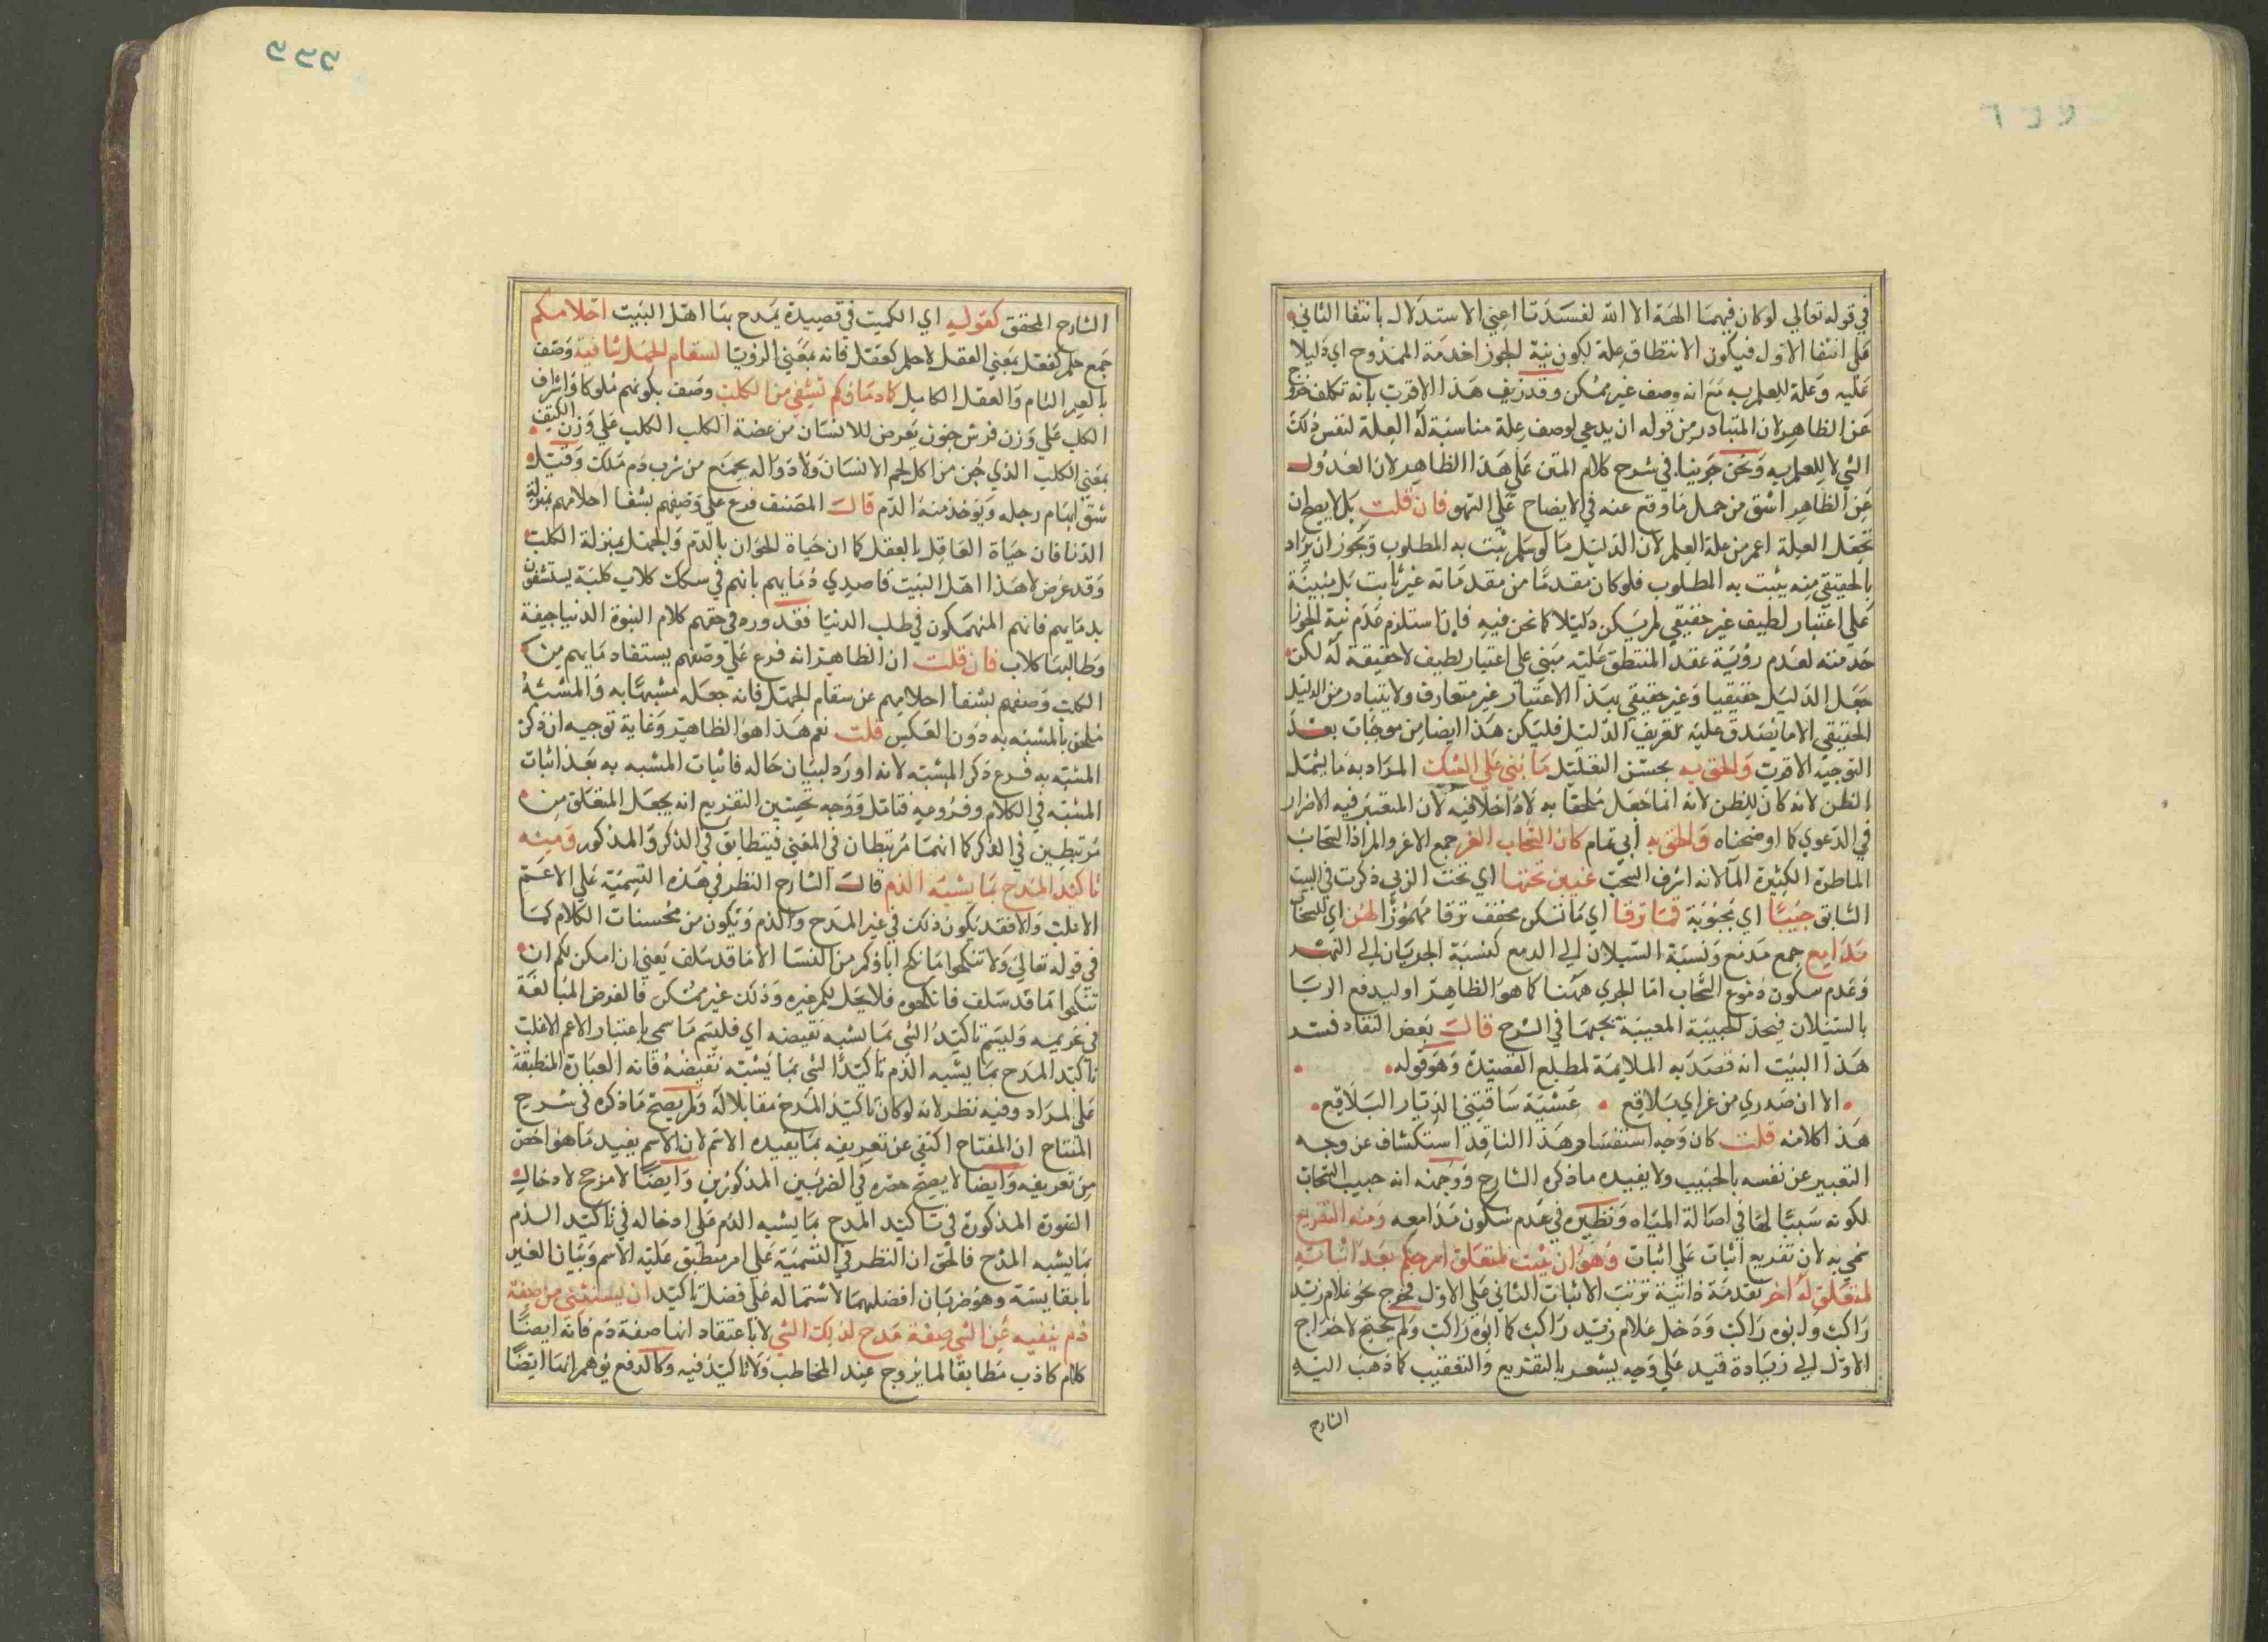 في قوله تعالي لوكان فيهما الهة الا الله لفسدتا اعني الاستدلال بانتفا الثاني
علي انتفا الاول فيكون الانتطاق علة لكون نية الجوزا خدمة الممدوح اي دليلا
عليه وعلة للعلم به مع انه وصف غير ممكن وقد زيف هذا الاقرب بانه تكلف خروج
عن الظاهر لان المتبادر من قوله ان يدعي لوصف علة مناسبة له العلة لنفس ذلك
الشي لا للعلم به ونحن جرينا في شرح كلام المتن علي هذا الظاهر لان العدول
عن الظاهر اشق من حمل ما وقع عنه في الايضاح علي السهو فان قلت بل لا يصح ان
تجعل العلة اعم من علة العلم لان الدليل ما لو سلم يثبت به المطلوب ويجوز ان يراد
بالحقيقي منه يثبت به المطلوب فلوكان مقدما من مقدماته غير ثابت بل مبينة
علي اعتبار لطيف غير حقيقي لم يكن دليلا كما نحن فيه فان استلزم عدم نية الجوزا
خدمته لعدم رؤية عقد المنتطق عليه مبني علي اعتبار لطيف لا حقيقة له لكن
جعل الدليل حقيقيا وغير حقيقي بهذا الاعتبار غير متعارف ولا يتبادر من الدليل
الحقيقي الا ما يصدق عليه تعريف الدليل فليكن هذا ايضا من موجبات بعد
التوجيه الاقرب والحق به بحسن التعليل ما بني علي الشك المراد به ما يشمل
الظن لانه كان للظن لانه انما جعل ملحقا به لا داخلا فيه لان المعتبر فيه الاضرار
في الدعوي كما اوضحناه والحق به ابي تمام كان السحاب الغر جمع الاغر والمراد السحاب
الماطرة الكثيرة المآ لانه اشرف السحب غيبن تحتها اي تحت الربي ذكرت في البيت
السابق حبيبا اي محبوبة فما ترقا اي ما تسكن مخفف ترقا مهموزا لهن اي للسحاب
مدامع جمع مدمع ونسبة السيلان الي الدمع كنسبة الجريان الي النهر
وعدم سكون دموع السحاب اما لجري همنا كما هو الظاهر او ليدفع الربا
بالسيلان فيجد الحبيبة المعيبة تحتها في الشرح قال بعض النقاد فسر
هذا البيت انه قصد به الملايمة لمطلع القصيدة وهو قوله
الا ان صدري من عزاي بلاقع عشية ساقتني الديار البلاقع
هذا كلامه قلت كان وجه استفسار هذا الناقد استكشاف عن وجه
التعبير عن نفسه بالحبيب ولا يفيده ما ذكره الشارح ووجهه انه حبيب السحاب
لكونه سببا لها في اصالة المياه ونظيره في عدم سكون مدامعه ومنه التفريع
سمي به لان تفريع اثبات علي اثبات وهو ان يثبت لمتعلق امر حكم بعد اثباته
لمتعلق له اخر تقدمة ذاتية ترتب الاثبات الثاني علي الاول فخرج نحو غلام زيد
راكب وابوه راكب ودخل غلام زيد راكب كما ابوه راكب ولم يحتج لاخراج
الاول الي زيادة قيد علي وجه يشعر بالتفريع والتعقيب كما ذهب اليه
الشارح
الشارح المحقق كقوله اي الكميت في قصيدة يمدح بها اهل البيت احلامكم
جمع حلم كفعل بمعني العقل لا حلم كعقل فانه بمعني الرؤيا لسقام الجهل شافية وصف
بالعلم التام والعقل الكامل كما دماوكم تشفي من الكلب وصف بكونهم ملوكا واشراف
الكلب علي وزن فرس جنون يعرض للانسان من عضة الكلب الكلب علي وزن الكتف
بمعني الكلب الذي جن من اكل لحم الانسان ولا دوا له ينجع من شرب دم ملك وقيل
شق ابهام رجله ويؤخذ منه الدم قال المصنف فرع علي وصفهم بشفا احلامهم بمنزلة
الدنا فان حياة العاقل بالعقل كما ان حياة الحيوان بالدم والجهل بمنزلة الكلب
وقد عرض لاهذا اهل البيت قاصدي دمايهم بانهم في سكك كلاب كلبة يستشفون
بدمايهم فانهم المنهمكون في طلب الدنيا فقد وره في حقهم كلام النبوة الدنيا جيفة
وطالبها كلاب فان قلت ان الظاهر انه فرع علي وصفهم بستفاد مايهم من
الكلب وصفهم بشفا احلامهم عن سقام الجهل فانه جعله مشبها به والمشبه
ملحق بالمشبه به دون العكس قلت نعم هذا هو الظاهر وغاية توجيه ان ذكر
المشبه به فرع ذكر المشبه لانه اورد لبيان حاله فاثبات المشبه به بعد اثبات
المشبه في الكلام وفرومه فتامل ووجه تحسين التفريع انه يجعل المتعلق من
مرتبطين في الذكر كما انهما مرتبطان في المعني فيتطابق في الذكر والمذكور ومنه
تاكيد المدح بما يشبه الذم قال الشارح النظر في هذه التسمية علي الاعم
الاغلب والا فقد يكون ذلك في غير المدح والذم ويكون من محسنات الكلام كما
في قوله تعالي ولا تنكحوا ما نكح اباؤكم من النسا الا ما قد سلف يعني ان امكن لكم ان
تنكحوا ما قد سلف فانكحوه فلا يحل لكم غيره وذلك غير ممكن فالغرض المبالغة
في تحريمه وليسم تاكيد الشي بما يشبه نقيضه اي فليسم ما سمي باعتبار الاعم الاغلب
تاكيد المدح بما يشبه الذم تاكيد الشي بما يشبه نقيضه فانه العبارة المنطبقة
علي المراد وفيه نظر لانه لوكان تاكيد المدح مقابلا له ولم يصح ما ذكره في شرح
المفتاح ان المفتاح اكتفي عن تعريفه بما يفيده الاسم لان الاسم يفيد ما هو اخص
من تعريفه وايضا لا يصح حصره في الضربين المذكورين وايضا لا مرجح لادخال
الصورة المذكورة في تاكيد المدح بما يشبه الذم علي ادخاله في تاكيد الذم
بما يشبه المدح فالحق ان النظر في التسمية علي امر منطبق عليه الاسم وبيان الغير
بالمقايسة وهو ضربان افضلهما لاشتماله علي فضل تاكيد ان يستثني من صفة
ذم منفيه عن الشي صفة مدح لذلك الشي لا باعتقاد انها صفة ذم فانه ايضا
كلام كاذب مطابقا لما يروج عند المخاطب ولا تاكيد فيه وكالدفع يوهم انها ايضا